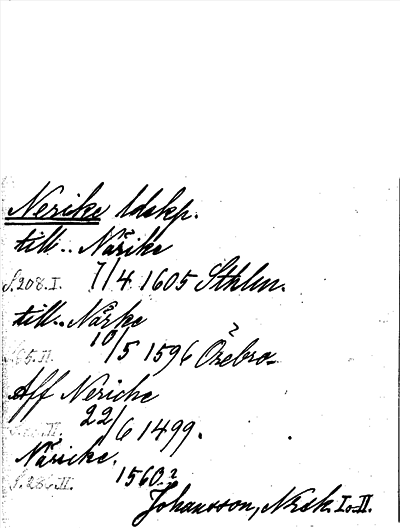 Nerike ldskp.
till.. Närike
S.208.I. 7/4 1605 Sthlm.
till.. Närke
S.65.II. 10/5 1596 Örebro ?
Aff Neriche
22/6 1499.
Närike,
S.286.II. 1560.?
Johansson, Nrsk. I o. II.